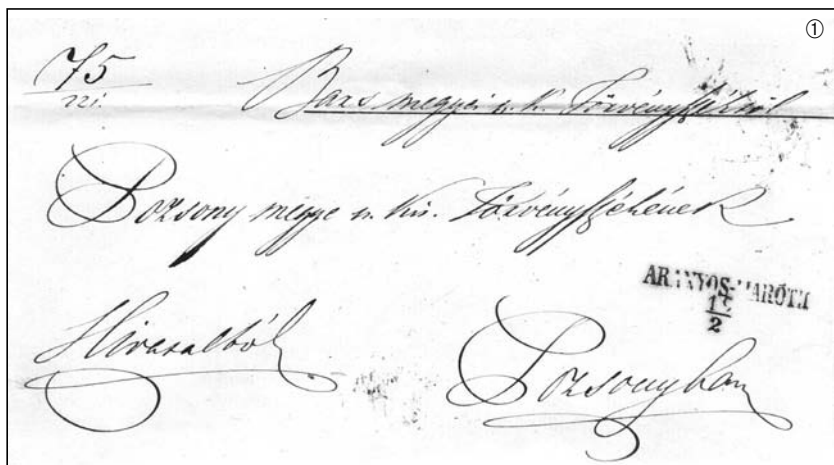 ①
75
Bars megyei n. k. Törvényszéktől
Pozsony megye n. kir. Törvényszékének
ARANYOS-MARÓTH
17
2
Hivatalból
Pozsonyban